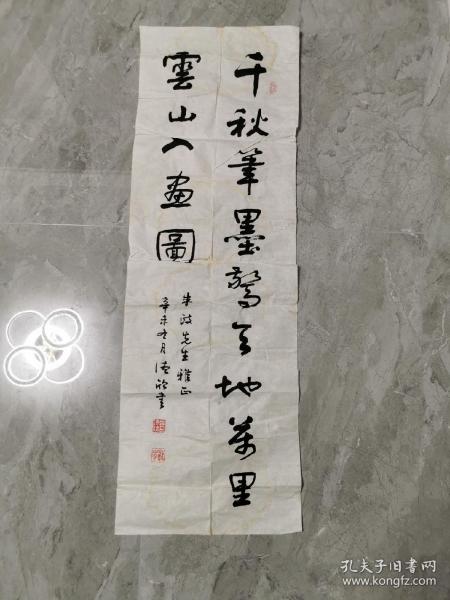 千秋筆墨驚天地萬里
雲山入畫圖
朱波先生雅正
辛未九月 書
孔夫子旧书网
www.kongfz.com